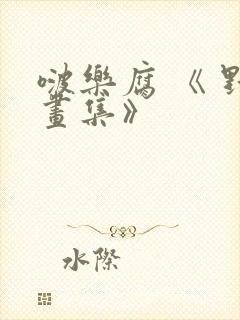 啵樂腐《野
畫集》
水際